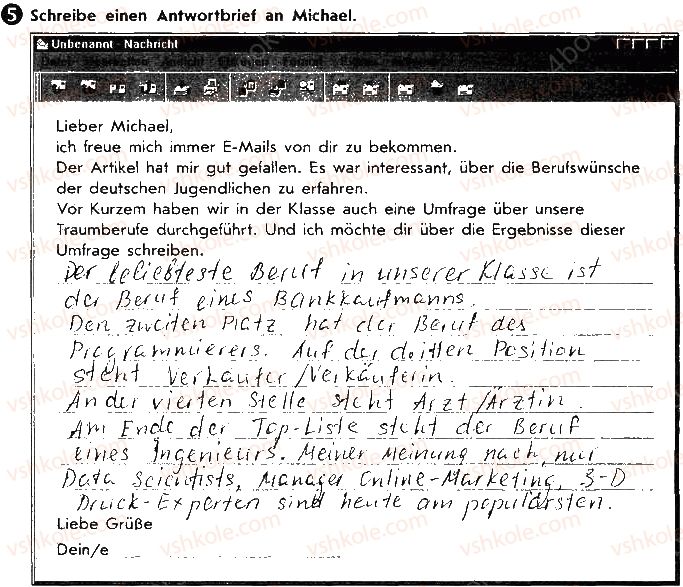 5 Schreibe einen Antwortbrief an Michael.
Unbenannt - Nachricht
Lieber Michael,
ich freue mich immer E-Mails von dir zu bekommen.
Der Artikel hat mir gut gefallen. Es war interessant, über die Berufswünsche
der deutschen Jugendlichen zu erfahren.
Vor Kurzem haben wir in der Klasse auch eine Umfrage über unsere
Traumberufe durchgeführt. Und ich möchte dir über die Ergebnisse dieser
Umfrage schreiben.
Der beliebteste Beruf in unserer Klasse ist
der Beruf eines Bankkaufmanns.
Den zweiten Platz hat der Beruf des
Programmierers. Auf der dritten Position
steht Verkäufer/Verkäuferin.
An der vierten Stelle steht Arzt/Ärztin.
Am Ende der Top-Liste steht der Beruf
eines Ingenieurs. Meiner Meinung nach, nur
Data Scientists, Manager Online-Marketing, 3-D
Druck-Experten sind heute am populärsten.
Liebe Grüße
Dein/e
vshkole.com